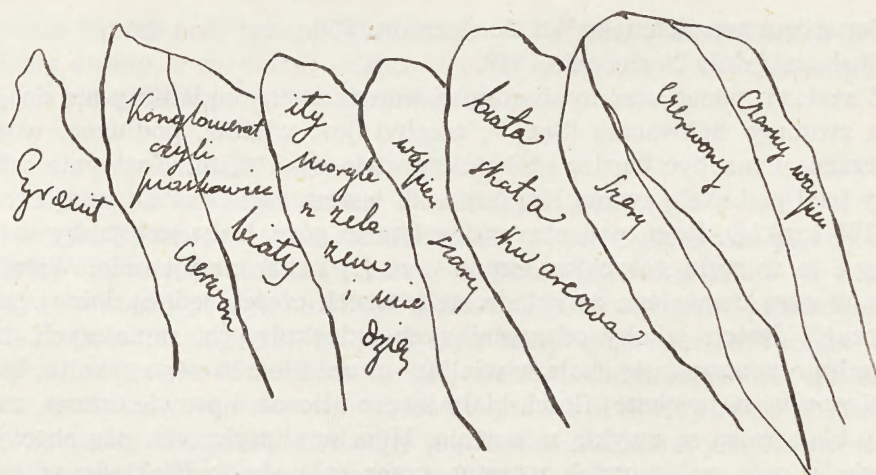 Granit
Konglomerat
czyli
piaskowiec
Czerwon
biały
iły
margle
z zela
zem
mie
dzią
wapień
szary
biała
skała
kwarcowa
szary
Czerwony
Czarny
wapień